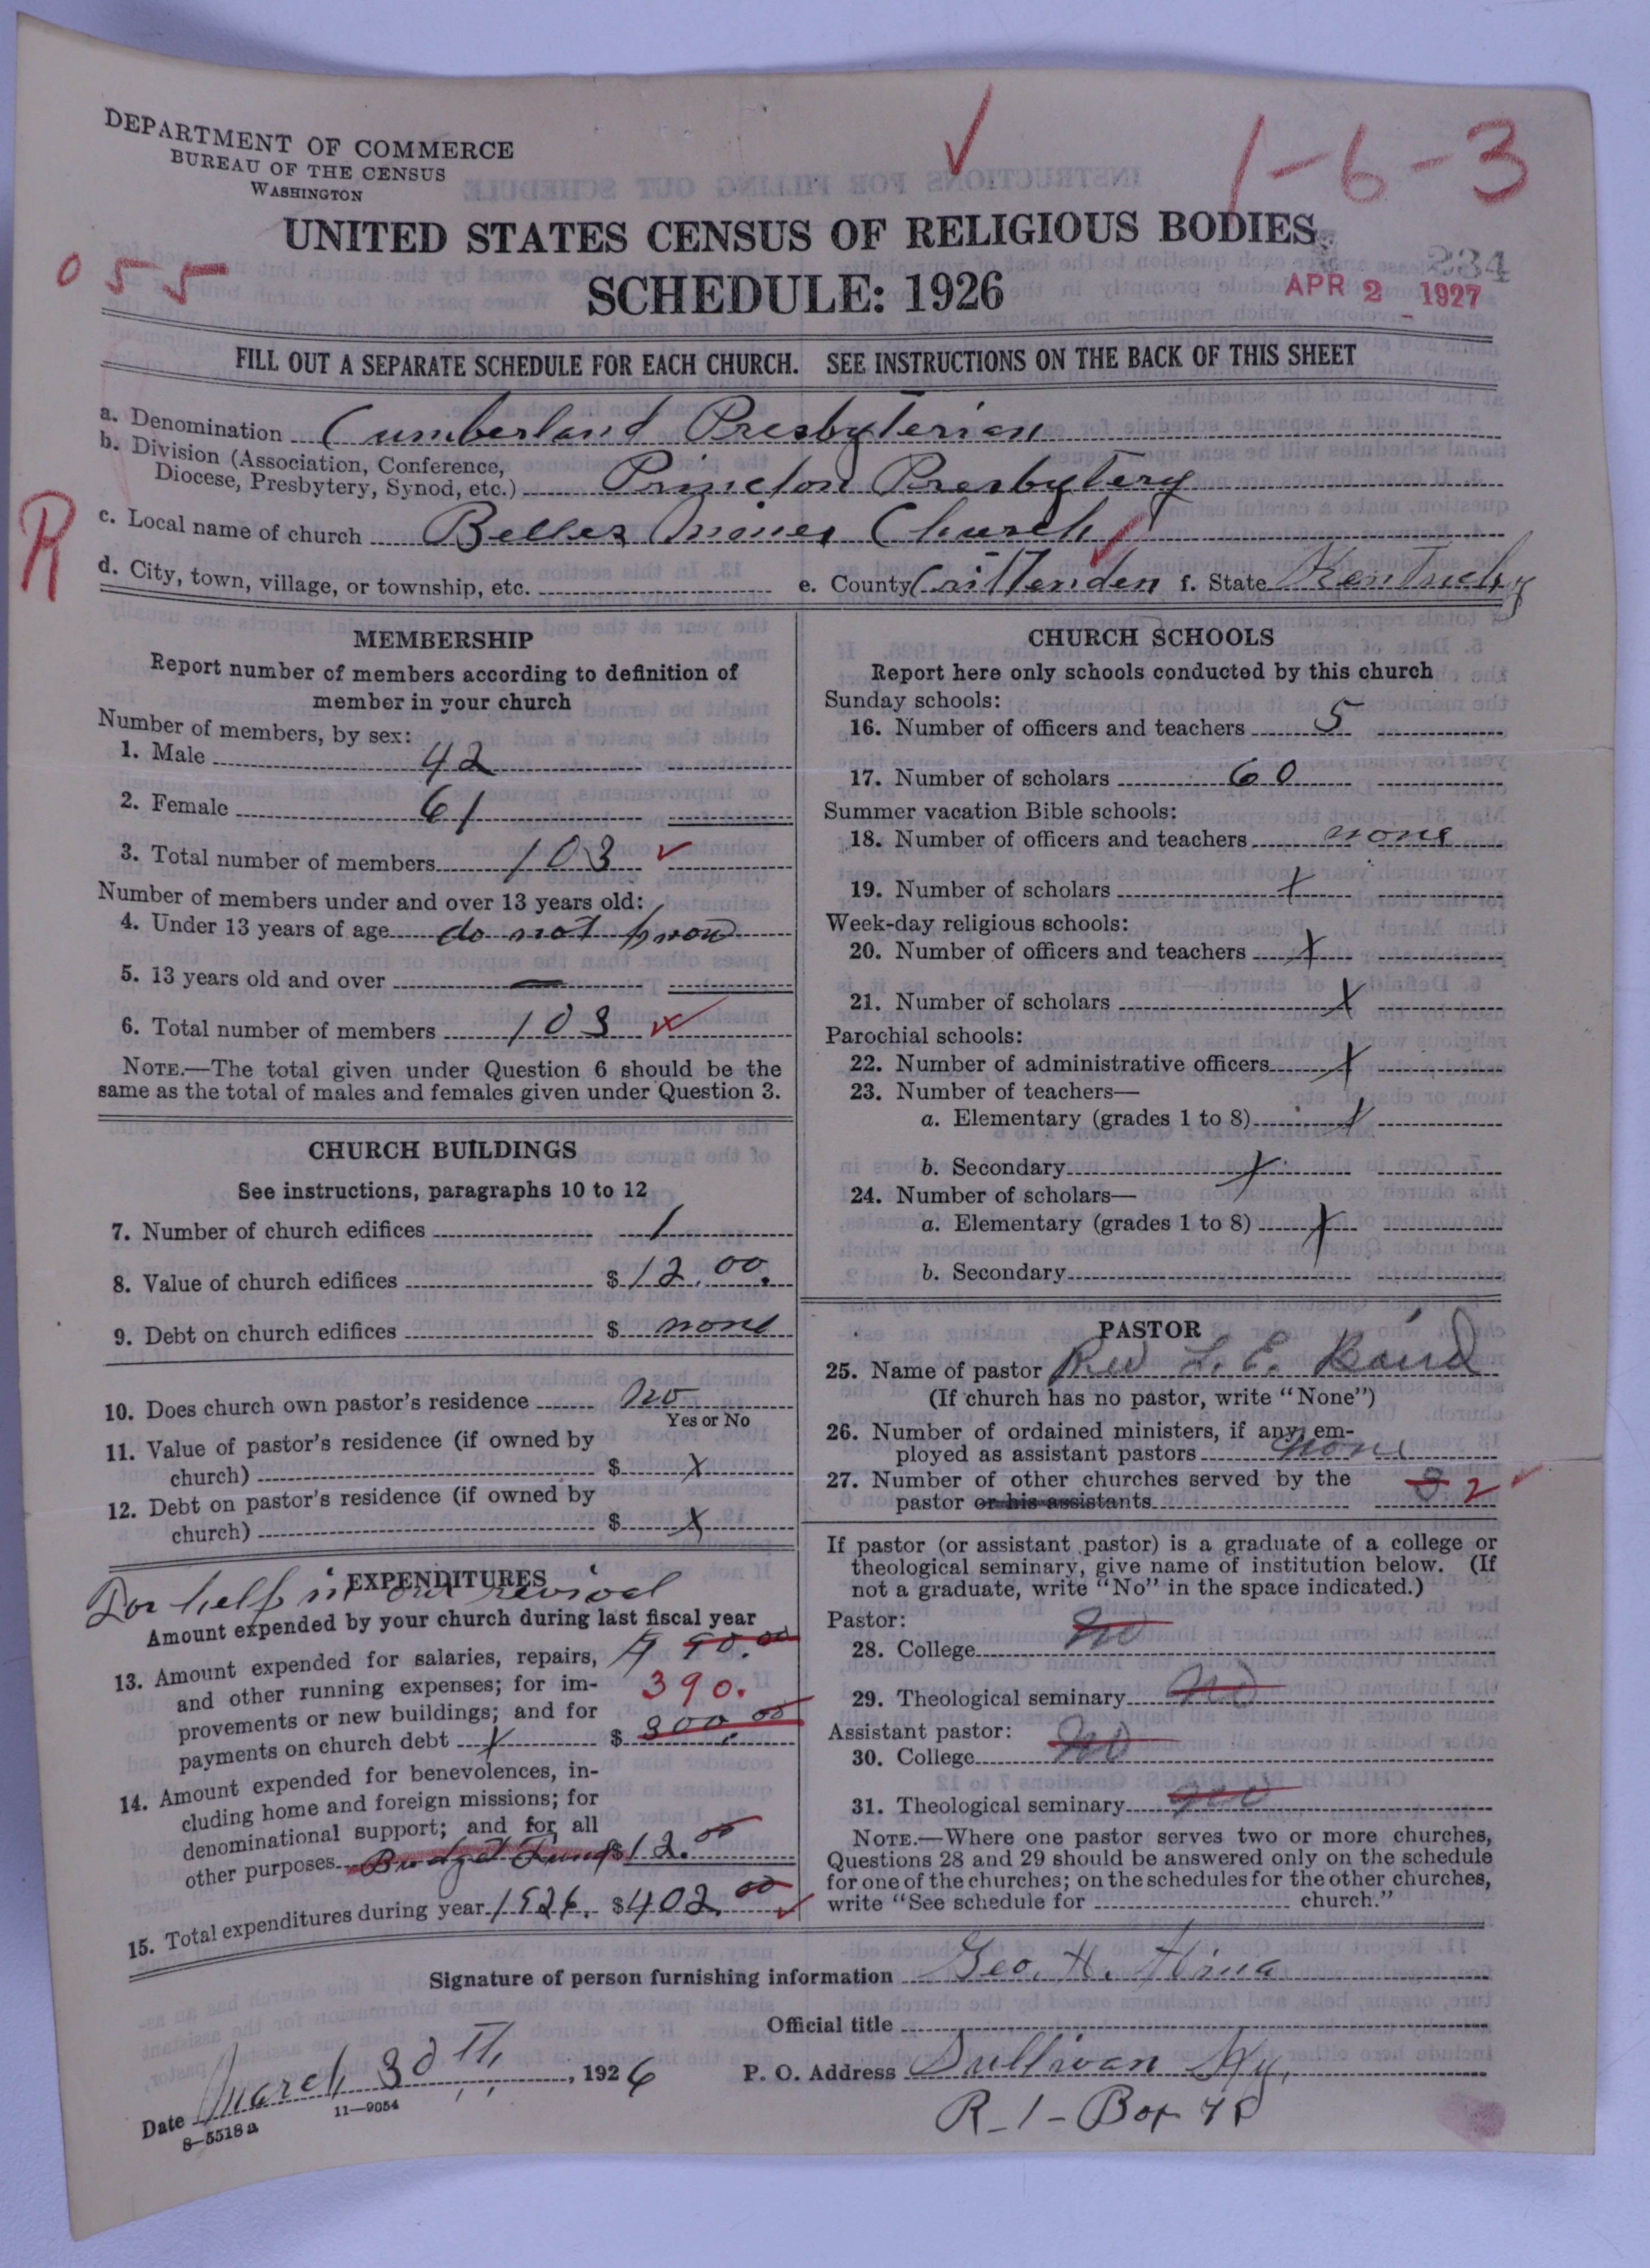 DEPARTMENT OF COMMERCE
BUREAU OF THE CENSUS
WASHINGTON
1-6-3
UNITED STATES CENSUS OF RELIGIOUS BODIES
SCHEDULE: 1926
055
234
APR 2 1927
FILL OUT A SEPARATE SCHEDULE FOR EACH CHURCH. SEE INSTRUCTIONS ON THE BACK OF THIS SHEET
a. Denomination Cumberland Presbyterian
b. Division (Association, Conference,
Diocese, Presbytery, Synod, etc.) Princton Presbytery
R
c. Local name of church Belles Mines Church
d. City, town, village, or township, etc. e. County Crittenden f. State Kentucky
MEMBERSHIP
Report number of members according to definition of
member in your church
Number of members, by sex:
1. Male 42
2. Female 61
3. Total number of members 103
Number of members under and over 13 years old:
4. Under 13 years of age do not know
5. 13 years old and over —
6. Total number of members 103
NOTE.—The total given under Question 6 should be the
same as the total of males and females given under Question 3.
CHURCH BUILDINGS
See instructions, paragraphs 10 to 12
7. Number of church edifices 1
8. Value of church edifices $ 12.00.
9. Debt on church edifices $ none
10. Does church own pastor's residence no
Yes or No
11. Value of pastor's residence (if owned by
church) $ X
12. Debt on pastor's residence (if owned by
church) $ X
EXPENDITURES
For help in our revival
Amount expended by your church during last fiscal year
13. Amount expended for salaries, repairs, 90.00
and other running expenses; for im- 390.
provements or new buildings; and for
payments on church debt X $ 300.00
14. Amount expended for benevolences, in-
cluding home and foreign missions; for
denominational support; and for all
other purposes Budget Fund $ 12.00
15. Total expenditures during year 1926. $ 402.00
CHURCH SCHOOLS
Report here only schools conducted by this church
Sunday schools:
16. Number of officers and teachers 5
17. Number of scholars 60
Summer vacation Bible schools:
18. Number of officers and teachers none
19. Number of scholars X
Week-day religious schools:
20. Number of officers and teachers X
21. Number of scholars X
Parochial schools:
22. Number of administrative officers X
23. Number of teachers—
a. Elementary (grades 1 to 8) X
b. Secondary X
24. Number of scholars—
a. Elementary (grades 1 to 8) X
b. Secondary
PASTOR
25. Name of pastor Rev L. E. Baird
(If church has no pastor, write "None")
26. Number of ordained ministers, if any, em-
ployed as assistant pastors none
27. Number of other churches served by the
pastor or his assistants 3 2
If pastor (or assistant pastor) is a graduate of a college or
theological seminary, give name of institution below. (If
not a graduate, write "No" in the space indicated.)
Pastor:
28. College no
29. Theological seminary no
Assistant pastor:
30. College no
31. Theological seminary no
NOTE.—Where one pastor serves two or more churches,
Questions 28 and 29 should be answered only on the schedule
for one of the churches; on the schedules for the other churches,
write "See schedule for church."
Signature of person furnishing information Geo. H.
Official title
Date March 30th, 1926 P. O. Address Sullivan Ky.
8—5518a 11—9054
R-1-Box